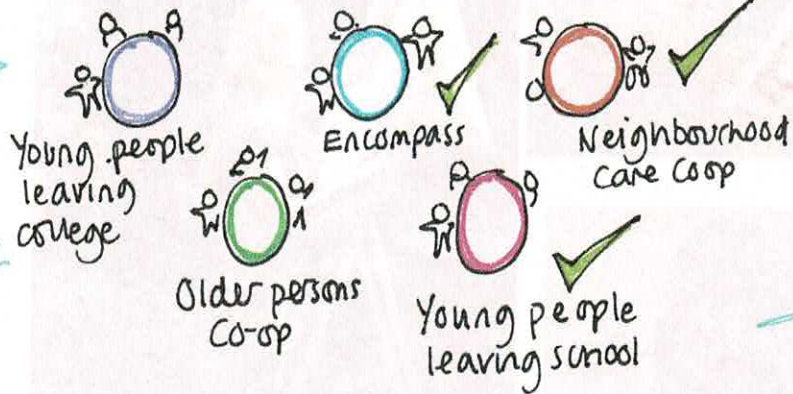 Young people
leaving
college
Encompass
Neighbourhood
Care Coop
Older persons
Co-op
Young people
leaving school